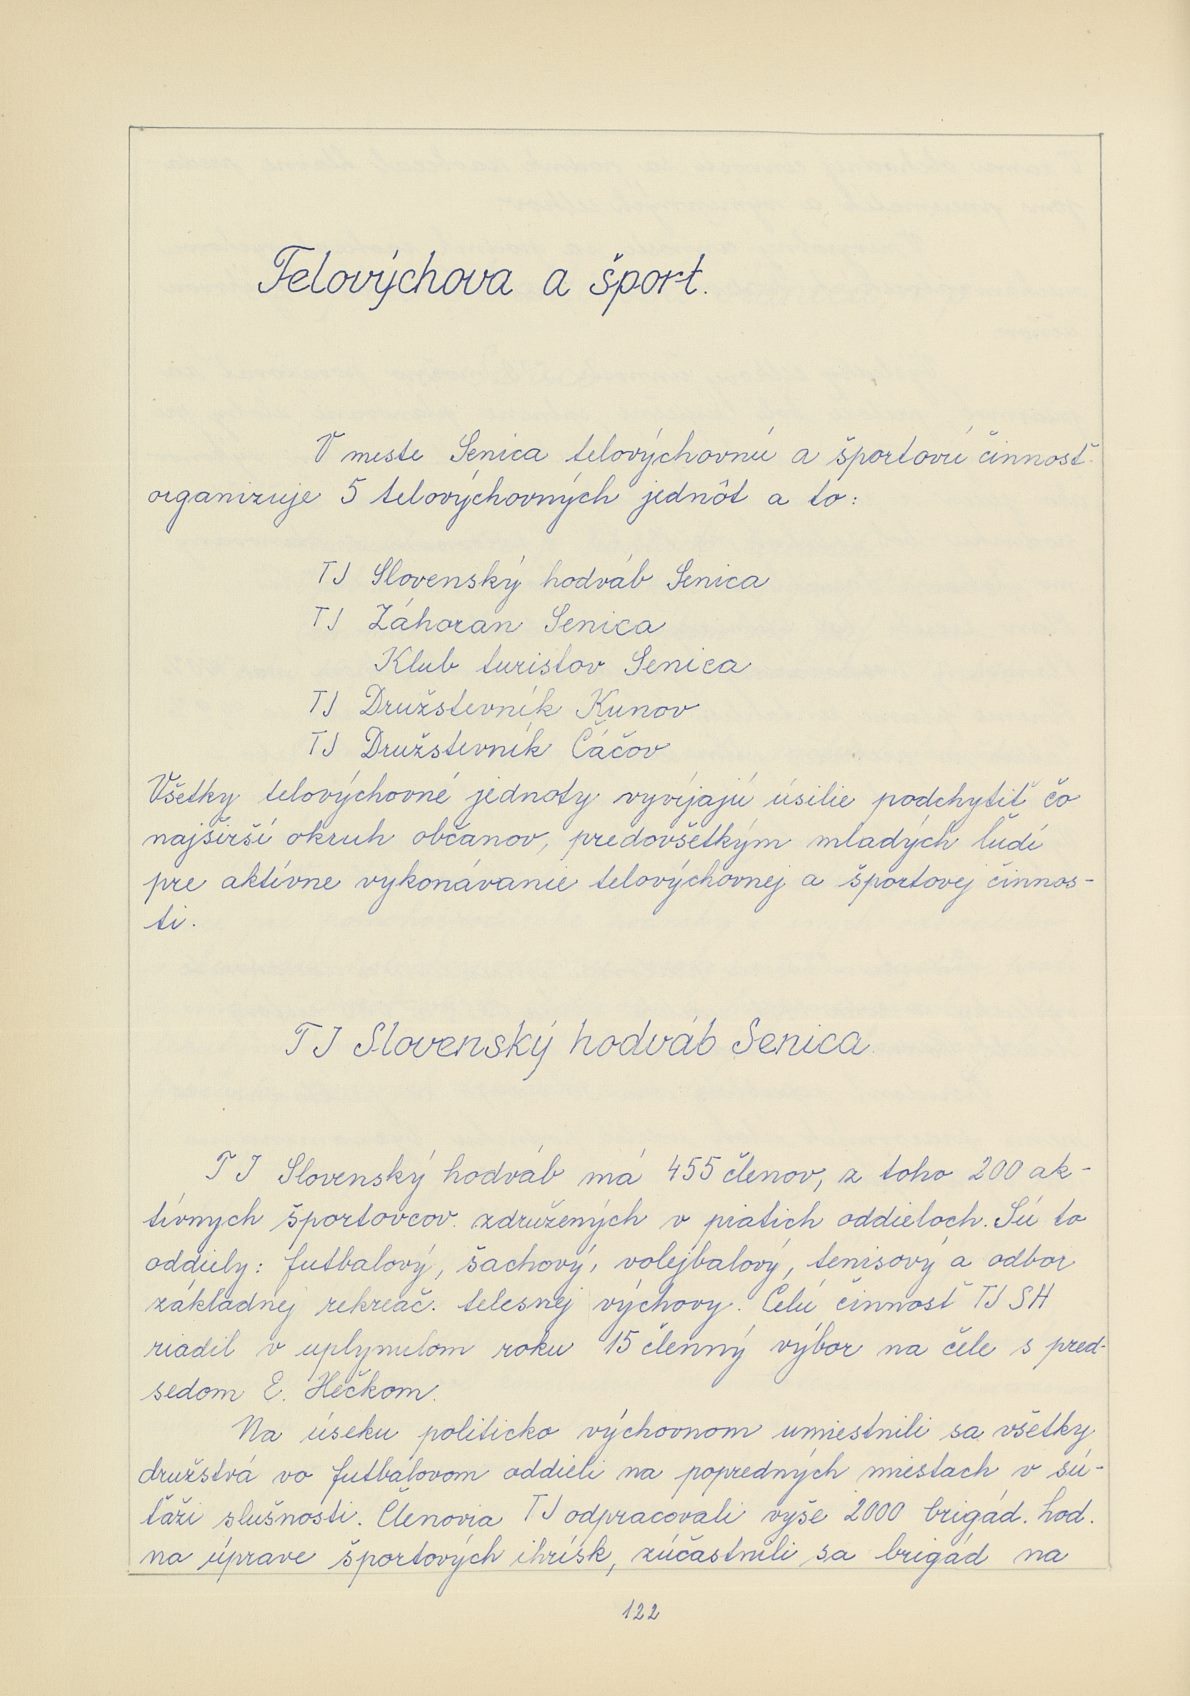 Telovýchova a šport.
V meste Senica telovýchovnú a športovú činnosť
organizuje 5 telovýchovných jednôt a to:
TJ Slovenský hodváb Senica
TJ Záhoran Senica
Klub turistov Senica
TJ Družstevník Kunov
TJ Družstevník Čáčov
Všetky telovýchovné jednoty vyvíjajú úsilie podchytiť čo
najširší okruh občanov, predovšetkým mladých ľudí
pre aktívne vykonávanie telovýchovnej a športovej činnos-
ti.
TJ Slovenský hodváb Senica
TJ Slovenský hodváb má 455 členov, z toho 200 ak-
tívnych športovcov združených v piatich oddieloch. Sú to
oddiely: futbalový, šachový, volejbalový, tenisový a odbor
základnej rekreač. telesnej výchovy. Celú činnosť TJ SH
riadil v uplynulom roku 15 členný výbor na čele s pred-
sedom E. Hečkom.
Na úseku politicko výchovnom umiestnili sa všetky
družstvá vo futbalovom oddieli na popredných miestach v sú-
ťaži slušnosti. Členovia TJ odpracovali vyše 2000 brigád. hod.
na úprave športových ihrísk, zúčastnili sa brigád na
122